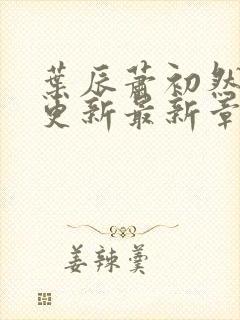 葉辰蕭初然
更新最新章
姜辣羹